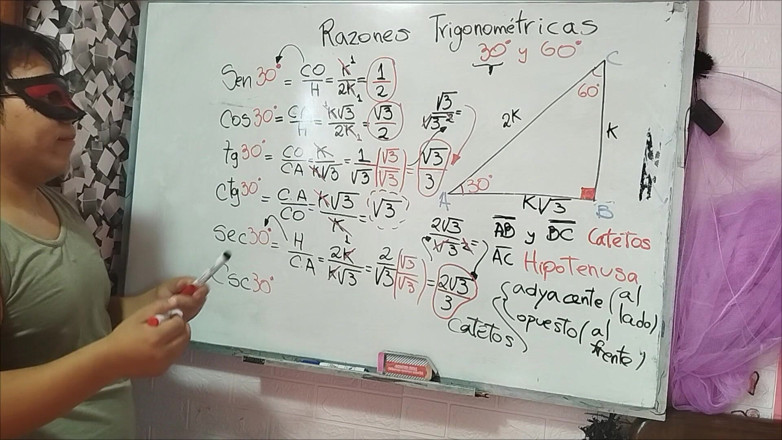 Razones Trigonométricas
30° y 60°
Sen30° = CO/H = K/2K = 1/2
Cos30° = CA/H = K√3/2K = √3/2
tg30° = CO/CA = K/K√3 = 1/√3 (√3/√3) = √3/3
√3/√3² =
Ctg30° = C.A/CO = K√3/K = √3
Sec30° = H/CA = 2K/K√3 = 2/√3 (√3/√3) = 2√3/3
2√3/√3² =
Csc30°
C
60°
2K
K
A
30°
K√3
B
AB y BC Catetos
AC Hipotenusa
Catetos
adyacente (al lado)
opuesto (al frente)